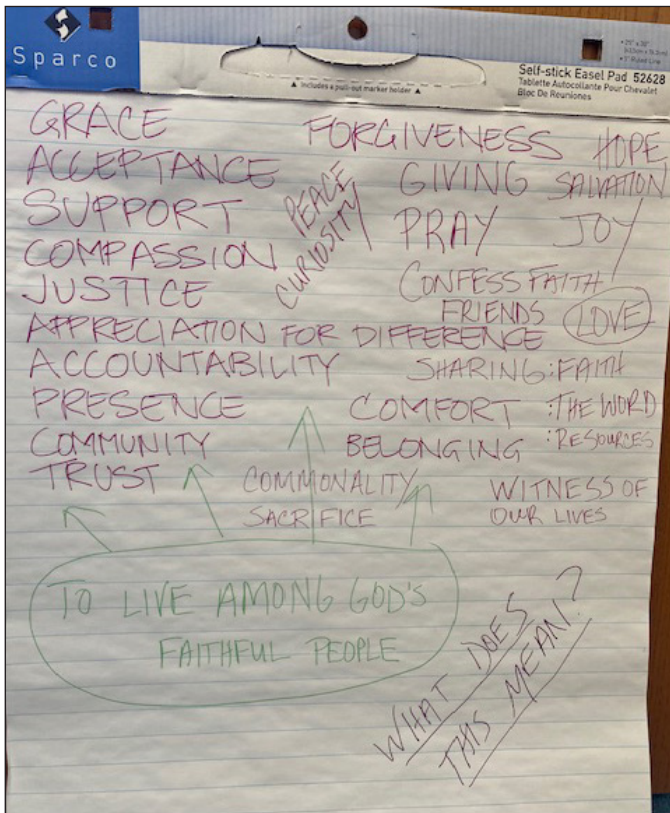 Sparco
Includes a pull-out marker holder
Self-stick Easel Pad 52628
Tablette Autocollante Pour Chevalet
Bloc De Reuniones
GRACE
ACCEPTANCE
SUPPORT
COMPASSION
JUSTICE
APPRECIATION FOR DIFFERENCE
ACCOUNTABILITY
PRESENCE
COMMUNITY
TRUST
PEACE
CURIOSITY
FORGIVENESS
HOPE
GIVING
SALVATION
PRAY
JOY
CONFESS FAITH
FRIENDS
LOVE
SHARING: FAITH
: THE WORD
: RESOURCES
COMFORT
BELONGING
COMMONALITY
SACRIFICE
WITNESS OF
OUR LIVES
TO LIVE AMONG GOD'S
FAITHFUL PEOPLE
WHAT DOES
THIS MEAN?